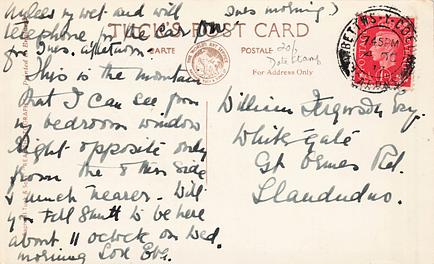 unless v. wet and will
telephone for the car on
Tues. afternoon.
Tues morning)
TUCK'S POST CARD
CARTE POSTALE
For Address Only
BETTWS-Y-COED
7 45 PM
This is the mountain
that I can see from
my bedroom window
Right opposite only
from the other side
& much nearer. Will
you tell Smith to be here
about 11 o'clock on Wed.
morning Love Eve.
William Ferguson Esq.
White Gate
Gt Ormes Rd.
Llandudno.